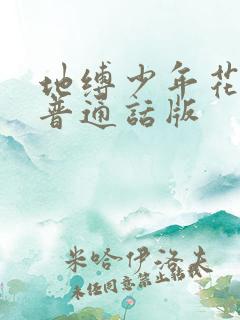 地缚少年花
普通話版
米哈伊洛夫
未经同意禁止转载